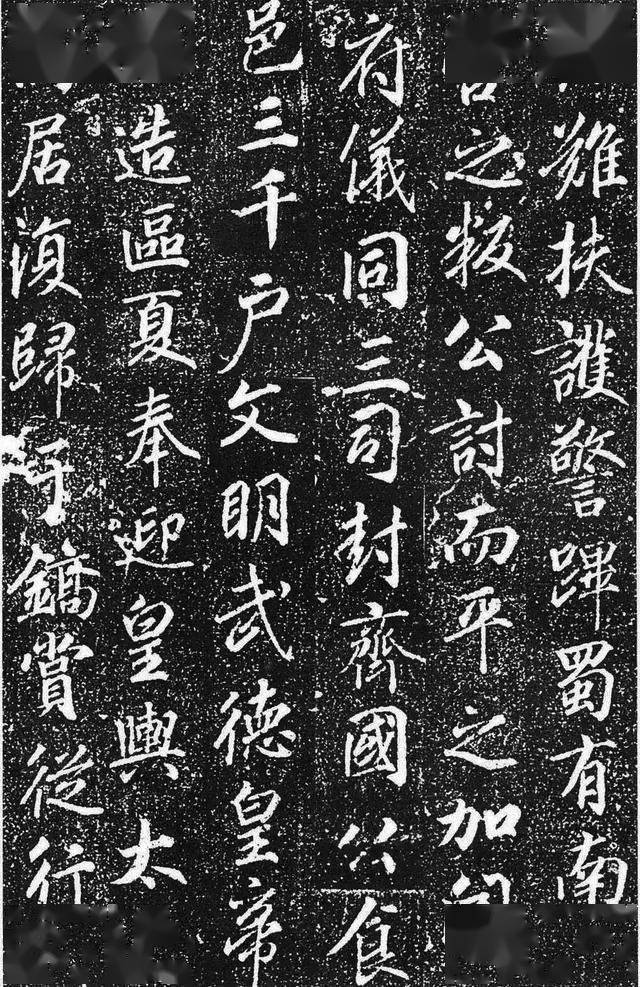 難扶護警蹕蜀有南
之叛公討而平之加
府儀同三司封齊國公食
邑三千户文明武德皇帝
造區夏奉迎皇輿太
居復歸于鎬賞從行